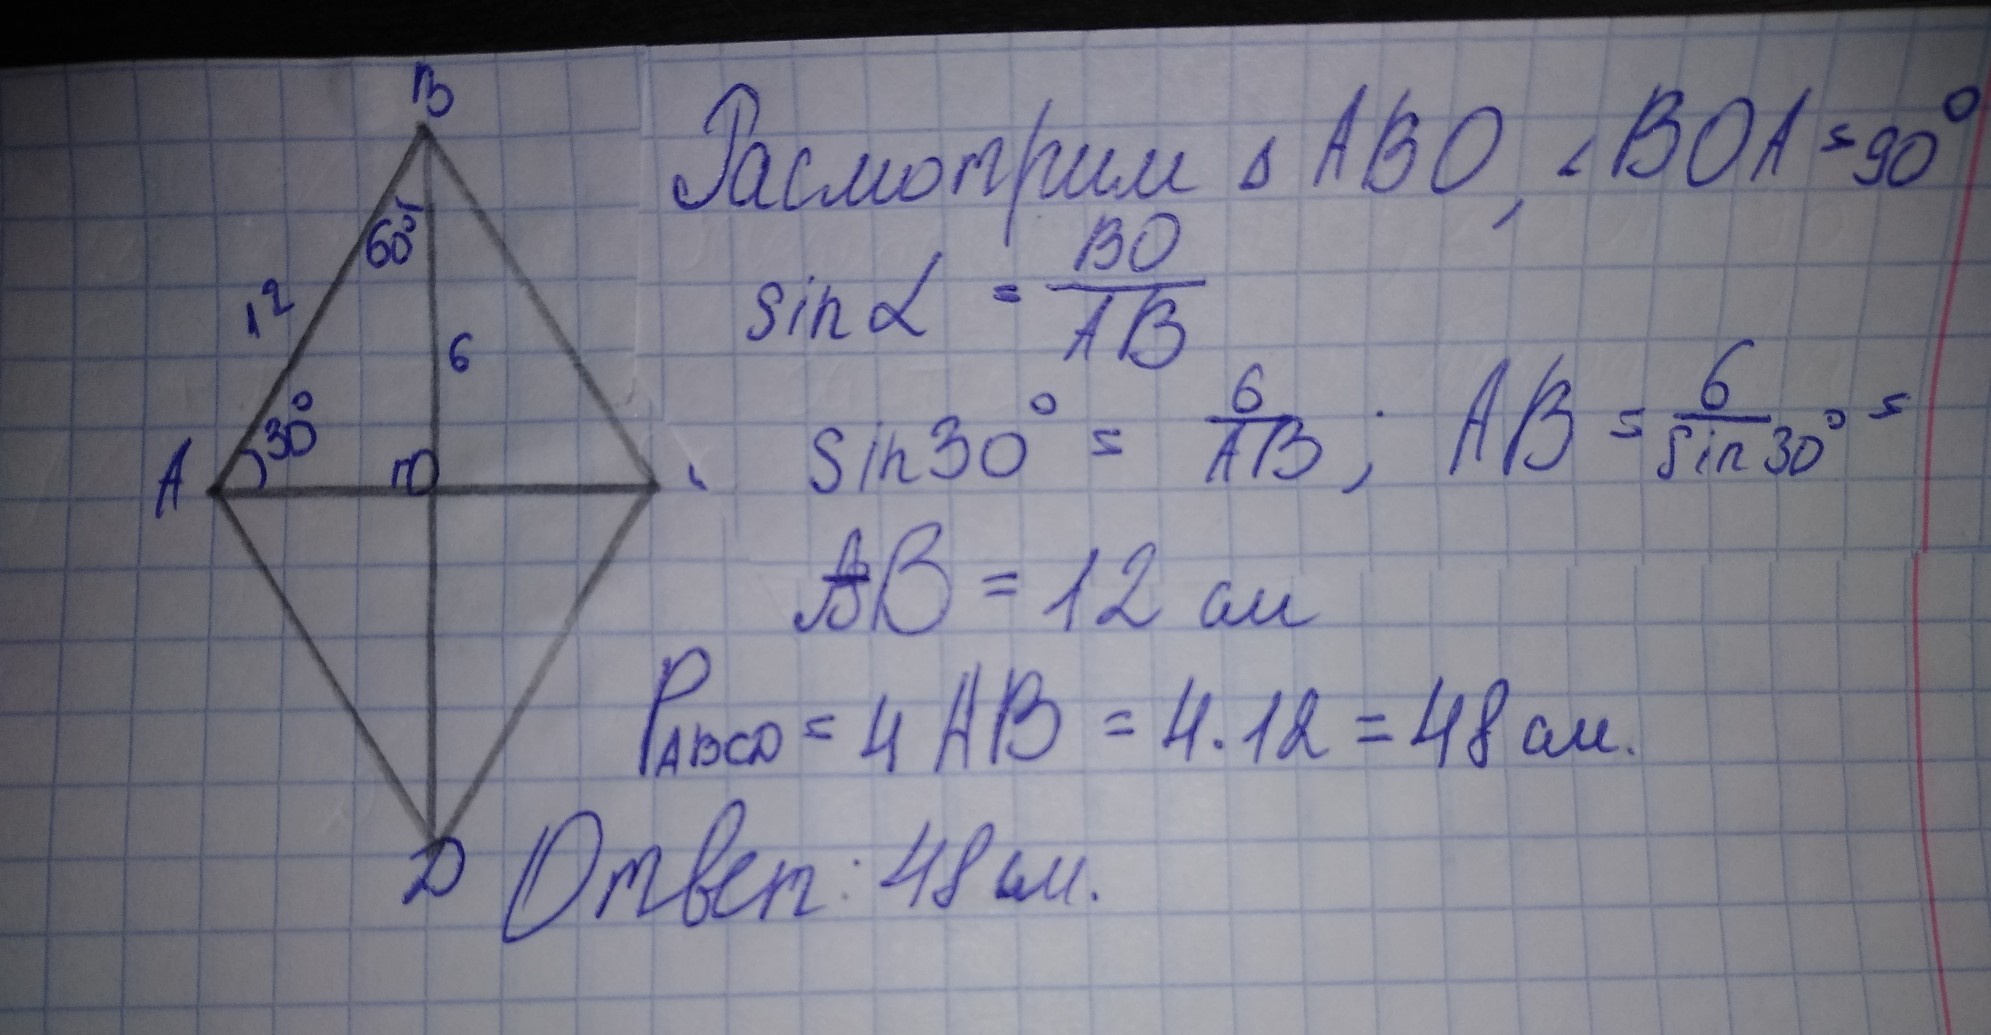 B
60°
12
6
30°
A
O
D
Расмотрим Δ ABO, ∠BOA = 90°
sin α = BO/AB
sin30° = 6/AB; AB = 6/sin30° =
AB = 12 см
P ABCD = 4 AB = 4·12 = 48 см.
Ответ: 48 см.